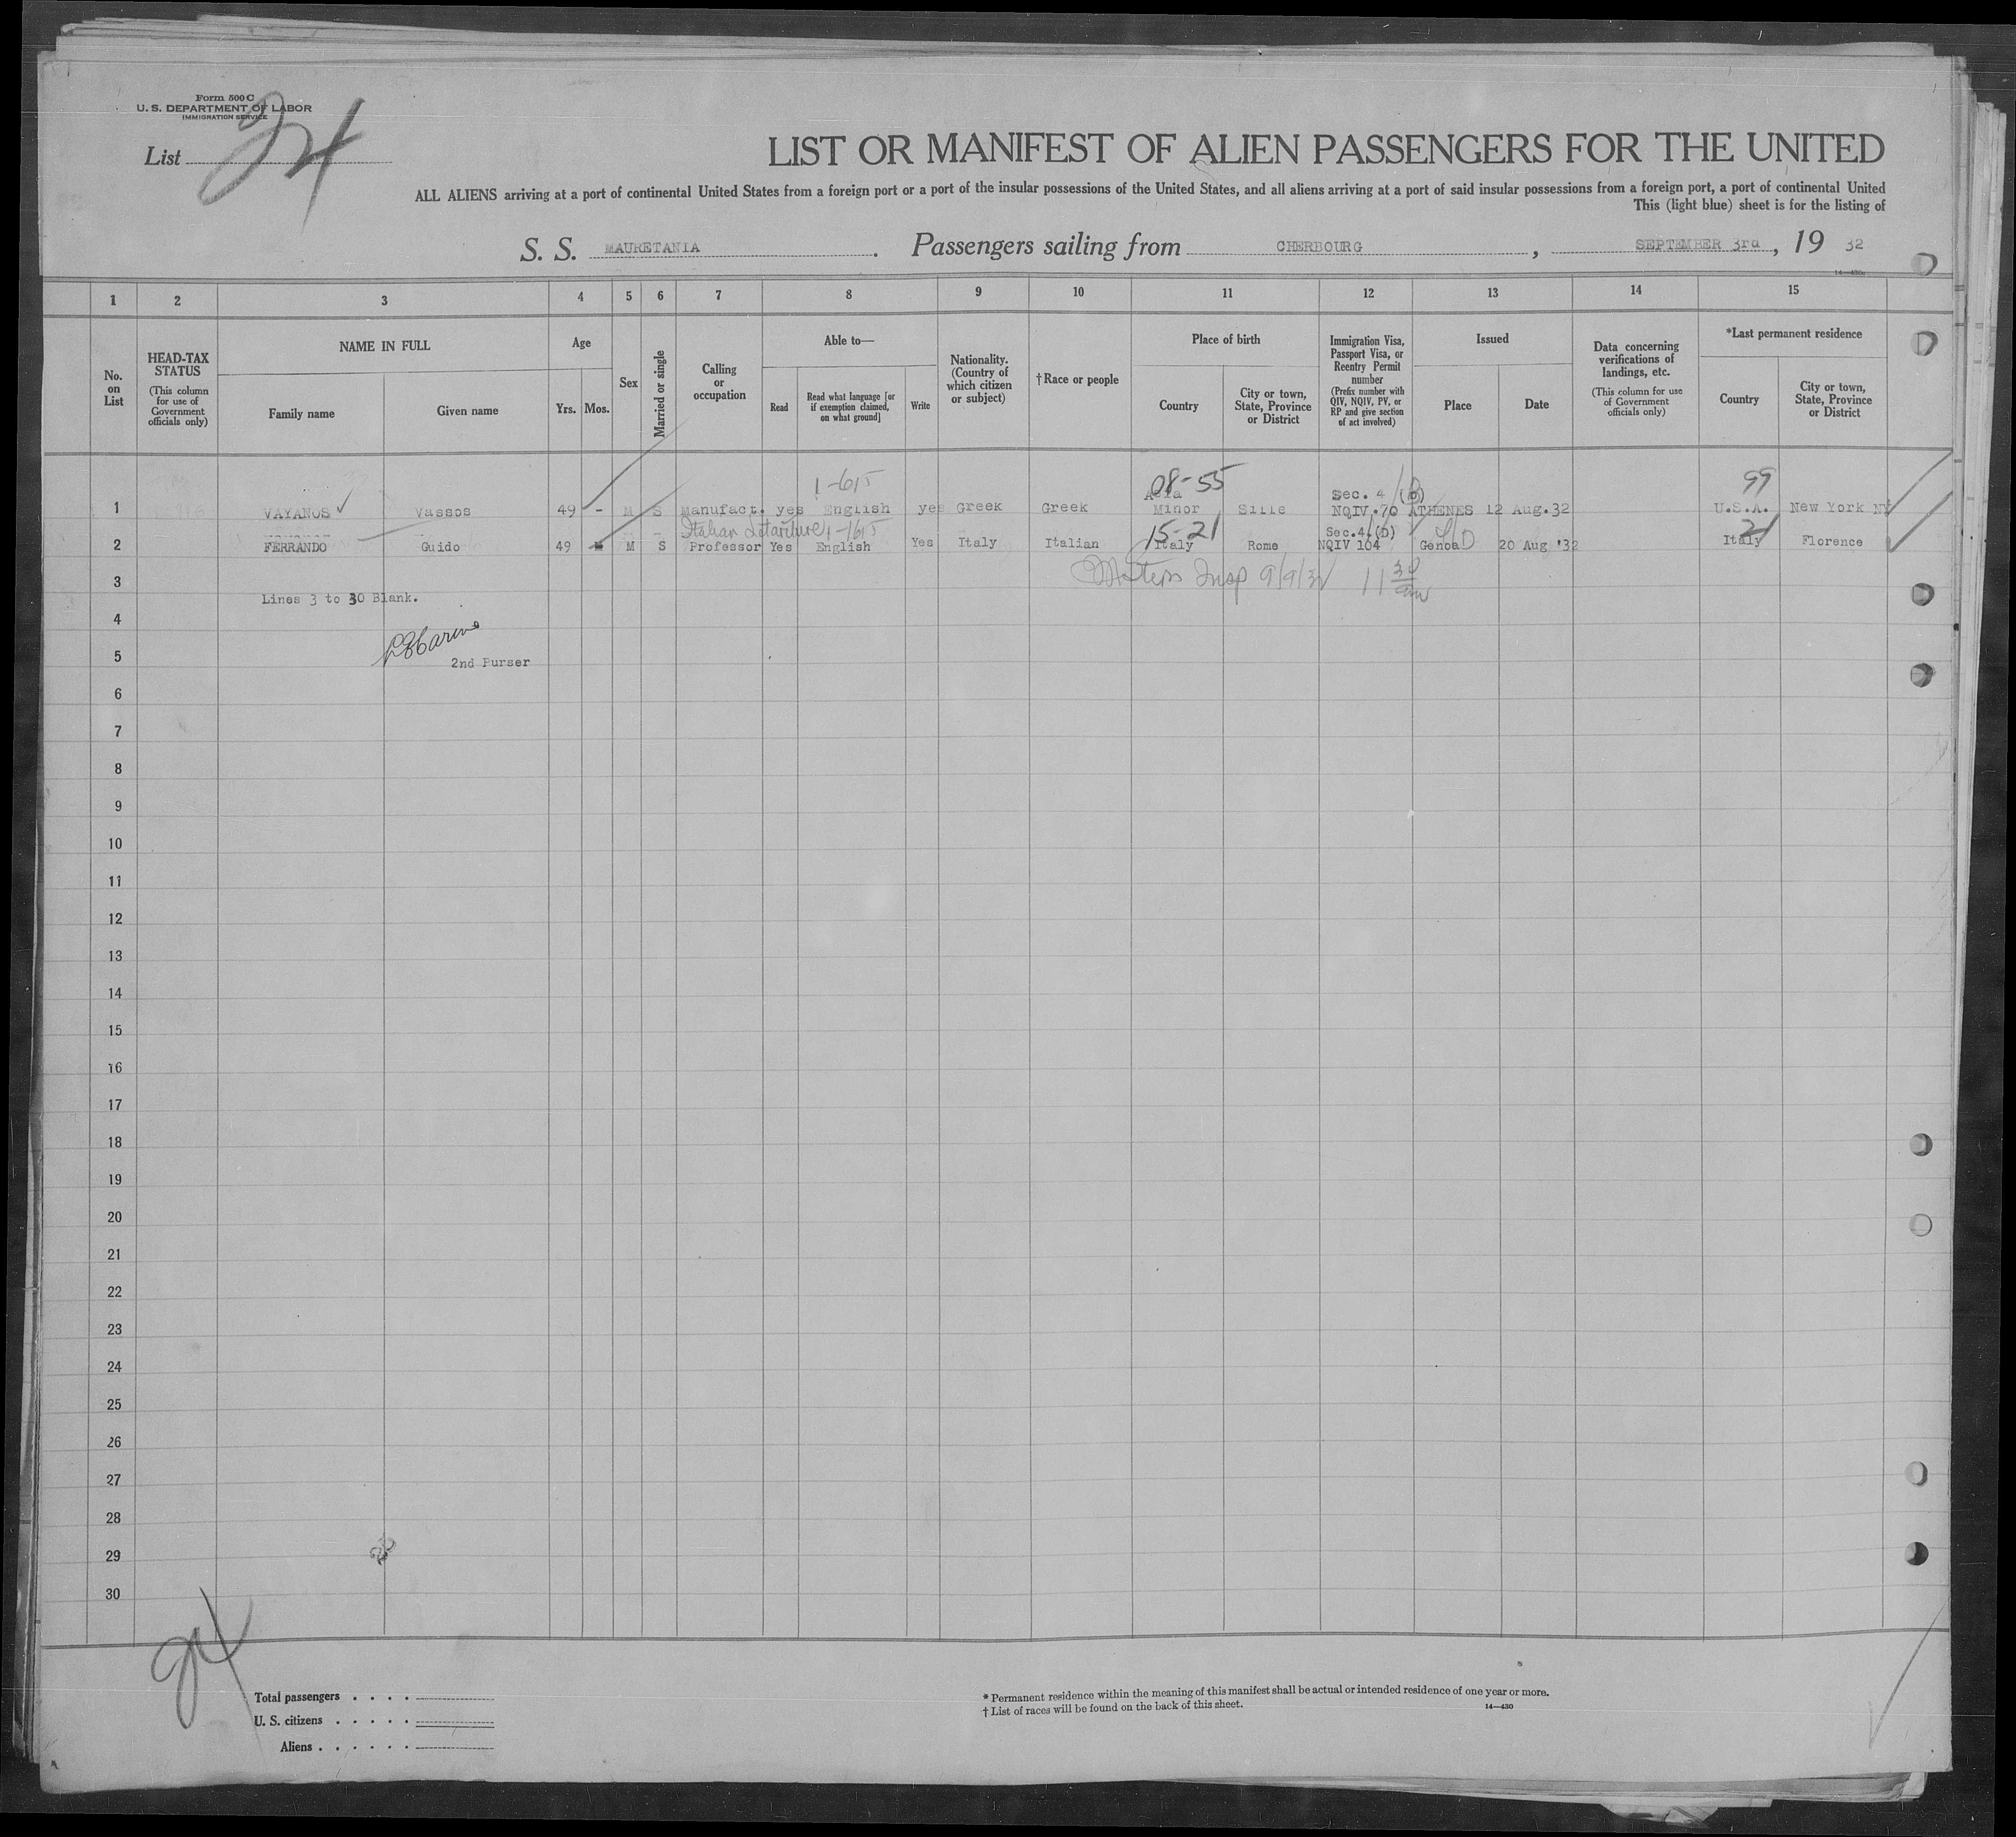 Form 500 C
U. S. DEPARTMENT OF LABOR
IMMIGRATION SERVICE
List 24
LIST OR MANIFEST OF ALIEN PASSENGERS FOR THE UNITED
ALL ALIENS arriving at a port of continental United States from a foreign port or a port of the insular possessions of the United States, and all aliens arriving at a port of said insular possessions from a foreign port, a port of continental United
This (light blue) sheet is for the listing of
S. S. MAURETANIA. Passengers sailing from CHERBOURG, SEPTEMBER 3rd, 19 32
14—430
1 2 3 4 5 6 7 8 9 10 11 12 13 14 15
No. on List
HEAD-TAX STATUS
(This column for use of Government officials only)
NAME IN FULL
Family name
Given name
Age
Yrs. Mos.
Sex
Married or single
Calling or occupation
Able to—
Read
Read what language [or if exemption claimed, on what ground]
Write
Nationality. (Country of which citizen or subject)
†Race or people
Place of birth
Country
City or town, State, Province or District
Immigration Visa, Passport Visa, or Reentry Permit number
(Prefix number with QIV, NQIV, PV, or RP and give section of act involved)
Issued
Place
Date
Data concerning verifications of landings, etc.
(This column for use of Government officials only)
*Last permanent residence
Country
City or town, State, Province or District
1-615 08-55 99
Asia Sec. 4 (b)
1 VAYANOS Vassos 49 - M S Manufact. yes English yes Greek Greek Minor Sille NQIV.70 ATHENES 12 Aug.32 U.S.A. New York NY
Italian Litarture 1-615 15-21 Sec.4.(b) 21
2 FERRANDO Guido 49 M S Professor Yes English Yes Italy Italian Italy Rome NQIV 164 Genoa 20 Aug '32 Italy Florence
3 Insp 9/9/32 11 30 am
Lines 3 to 30 Blank.
4
5 2nd Purser
6
7
8
9
10
11
12
13
14
15
16
17
18
19
20
21
22
23
24
25
26
27
28
29
30
24
Total passengers . . . .
U. S. citizens . . . . .
Aliens . . . . . .
* Permanent residence within the meaning of this manifest shall be actual or intended residence of one year or more.
† List of races will be found on the back of this sheet. 14—430